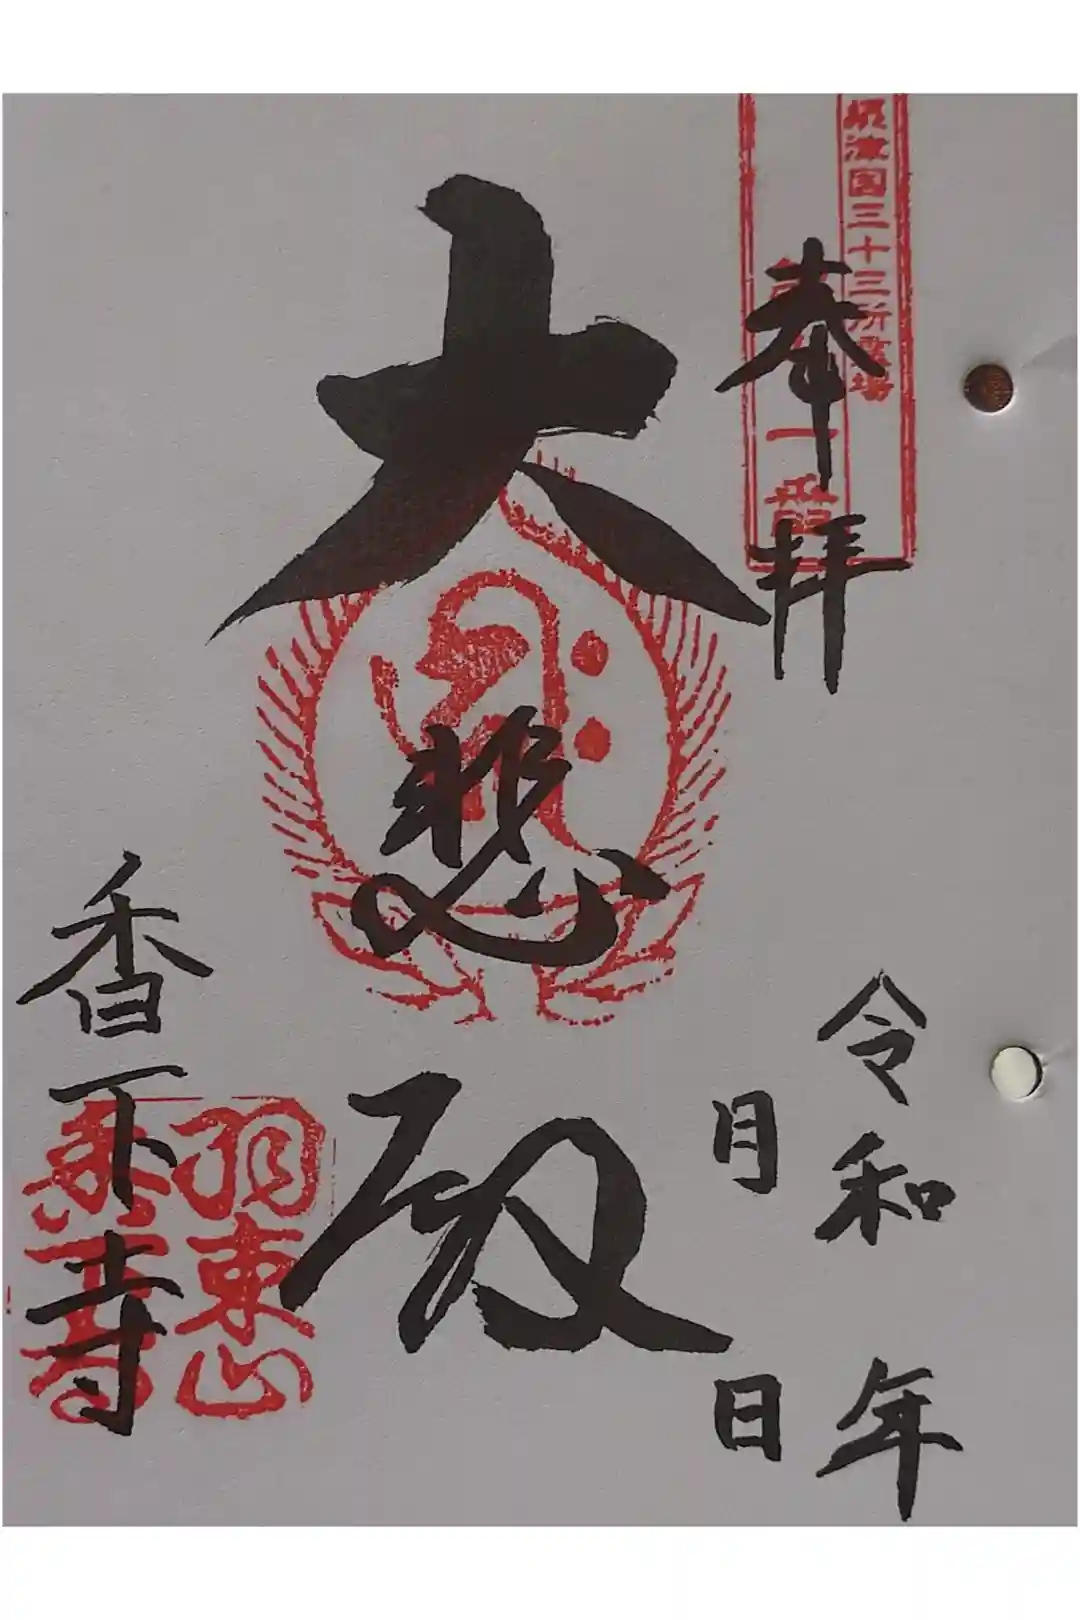 摂津国三十三所霊場
第一番
奉拝
令和 年
月 日
大悲殿
羽束山
香下寺